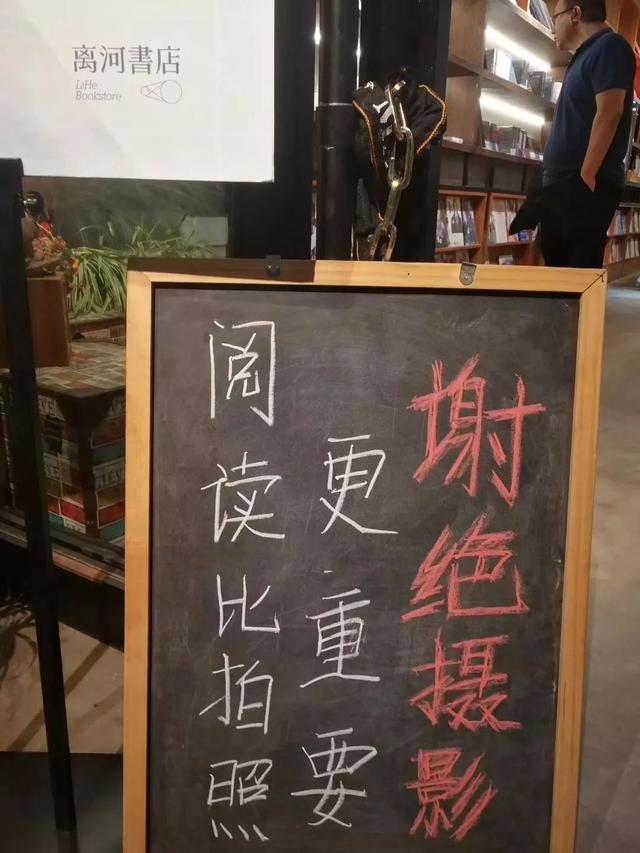 离河書店
LiHe
Bookstore
谢绝摄影
阅读比拍照
更重要